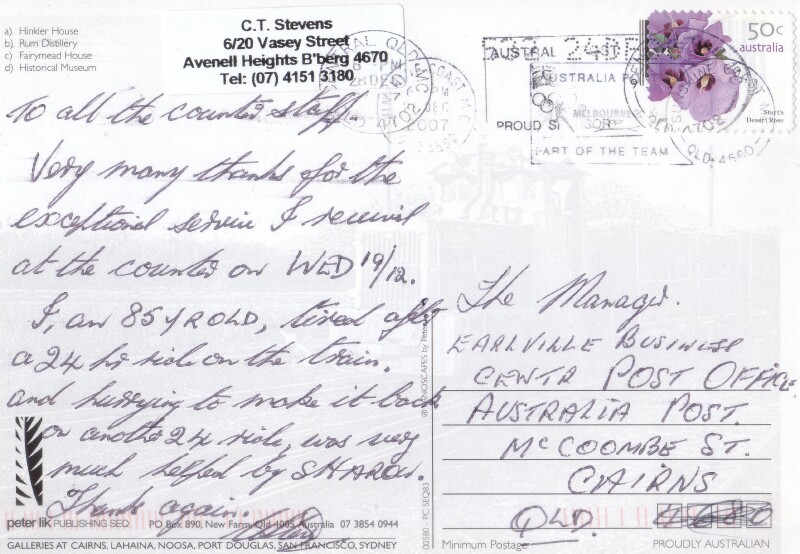 a) Hinkler House
b) Rum Distillery
c) Fairymead House
d) Historical Museum
C.T. Stevens
6/20 Vasey Street
Avenell Heights B'berg 4670
Tel: (07) 4151 3180
50c
australia
Sturt's
Desert Rose
2007
AUSTRALIA PO
MELBOURNE
PROUD S
PART OF THE TEAM
QLD-4560
To all the counter staff.
Very many thanks for the
exceptional service I received
at the counter on WED 19/12.
I, an 85 YR OLD, tired after
a 24 hr ride on the train.
and hurrying to make it back
on another 24 ride, was very
much helped by SHARON.
Thanks again.
The Manager.
EARLVILLE BUSINESS
CENTR POST OFFICE
AUSTRALIA POST.
McCOOMBE ST.
CAIRNS
QLD.
peter lik PUBLISHING SEQ. PO Box 890, New Farm, Qld 4005, Australia 07 3854 0944
GALLERIES AT CAIRNS, LAHAINA, NOOSA, PORT DOUGLAS, SAN FRANCISCO, SYDNEY
00580 - PC SEQ83
Minimum Postage
PROUDLY AUSTRALIAN